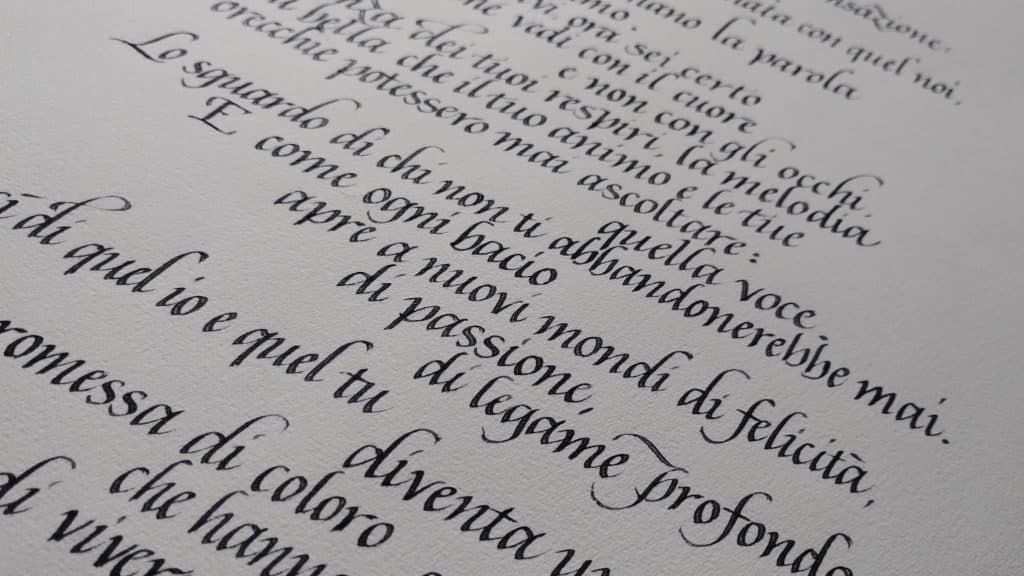 sazione,
con quel noi,
la parola
ora sei certo
vadi con il cuore
e non con gli occhi.
dei tuoi respiri, la melodia
bella che il tuo animo e le tue
orecchie potessero mai ascoltare:
quella voce
Lo sguardo di chi non ti abbandonerebbe mai.
E come ogni bacio
apre a nuovi mondi di felicità,
di passione,
di legame profondo
di quel io e quel tu
diventa un
romessa di coloro
che hann
di viver